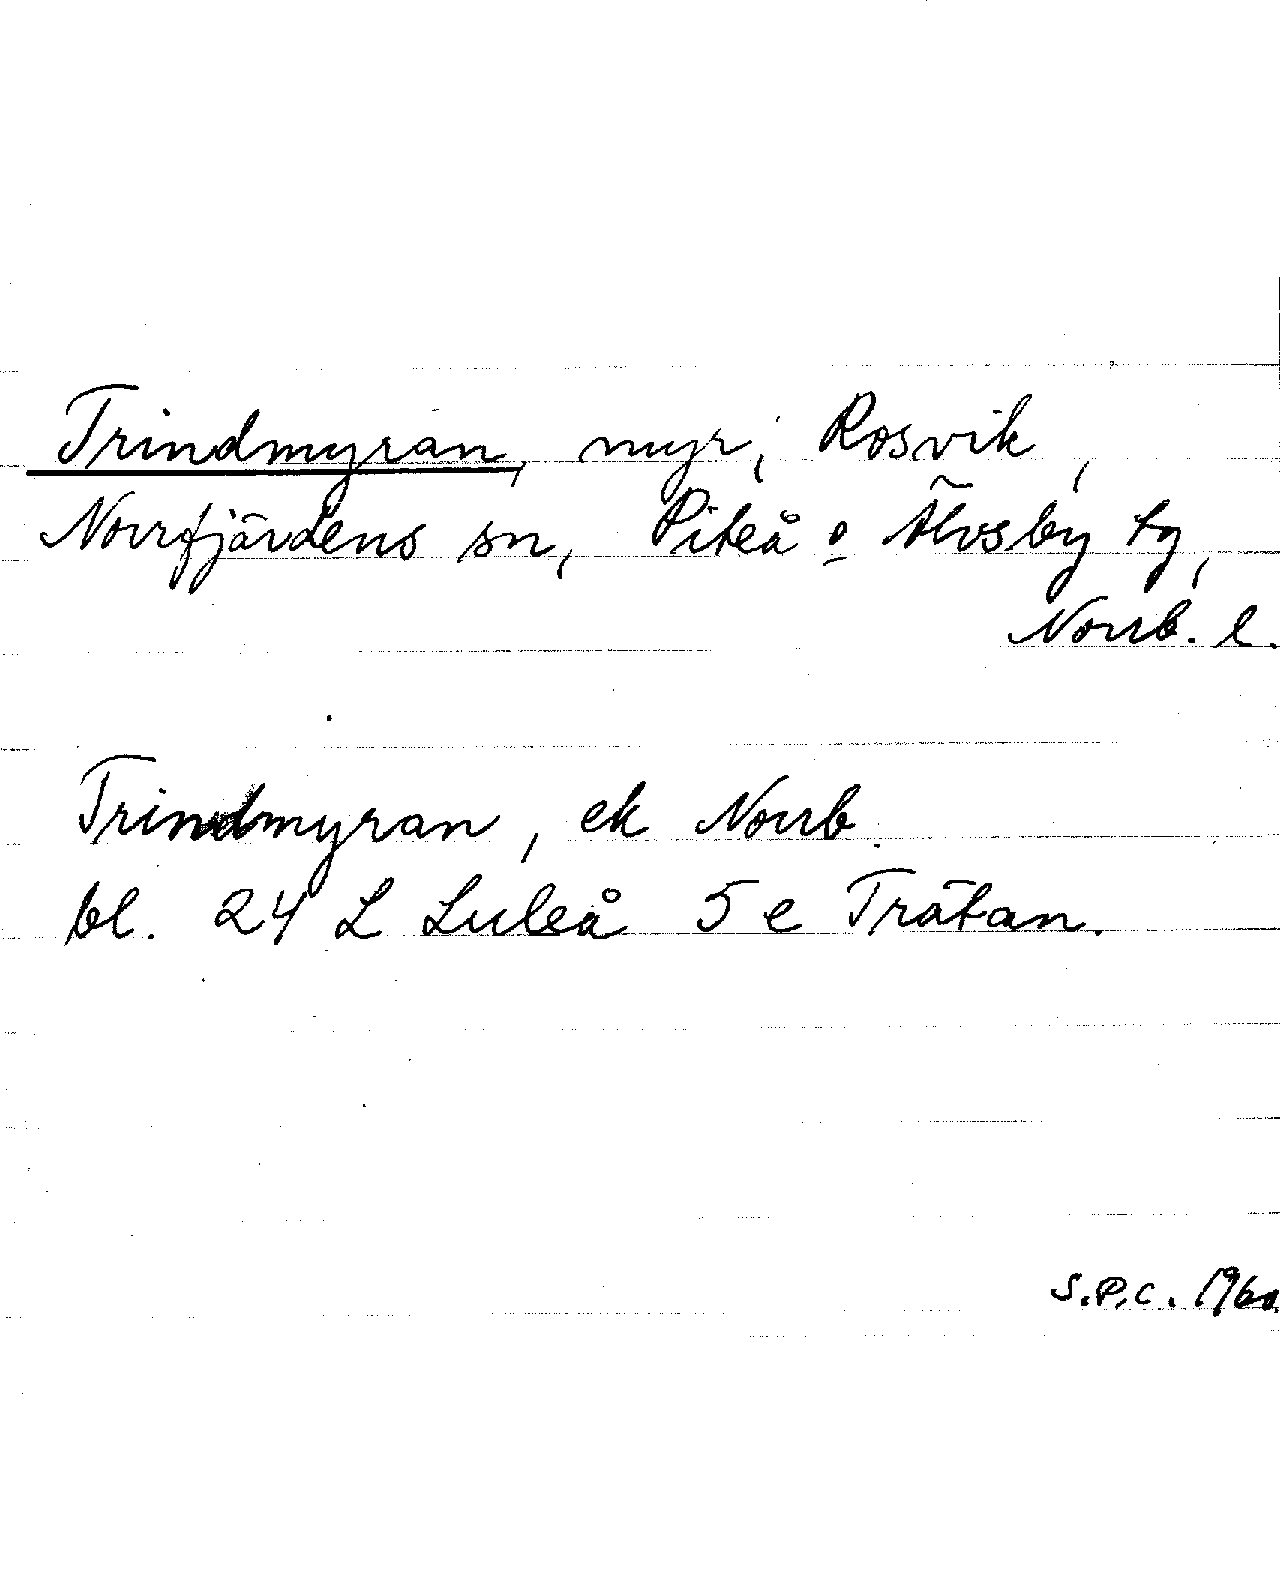 Trindmyran, myr, Rosvik,
Norrfjärdens sn, Piteå o Älvsby tg,
Norrb. l.
Trindmyran, ek Norrb.
bl. 24 L Luleå 5 e Trätan.
S.P.C. 1960